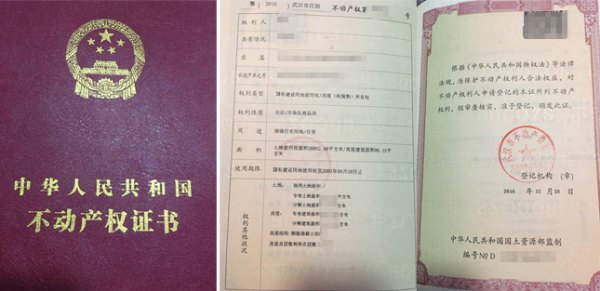 中华人民共和国
不动产权证书
鄂(2016)武汉市江阳不动产权第号
权利人
共有情况
坐落
不动产单元号
权利类型 国有建设用地使用权/房屋(构筑物)所有权
权利性质 出让/市场化商品房
用途 城镇住宅用地/住宅
面积 土地使用权面积
平方米
使用期限 国有建设用地使用权至
权利其他状况
土地:
专有土地面积 平方米
分摊土地面积 平方米
房屋:专有建筑面积 平方米
分摊建筑面积 平方米
房屋结构:钢筋混凝土结
根据《中华人民共和国物权法》等法律
法规,为保护不动产权利人合法权益,对
不动产权利人申请登记的本证所列不动产
权利,经审查核实,准予登记,颁发此证。
登记机构(章)
2016 年 12 月 23 日
中华人民共和国国土资源部监制
编号 № D